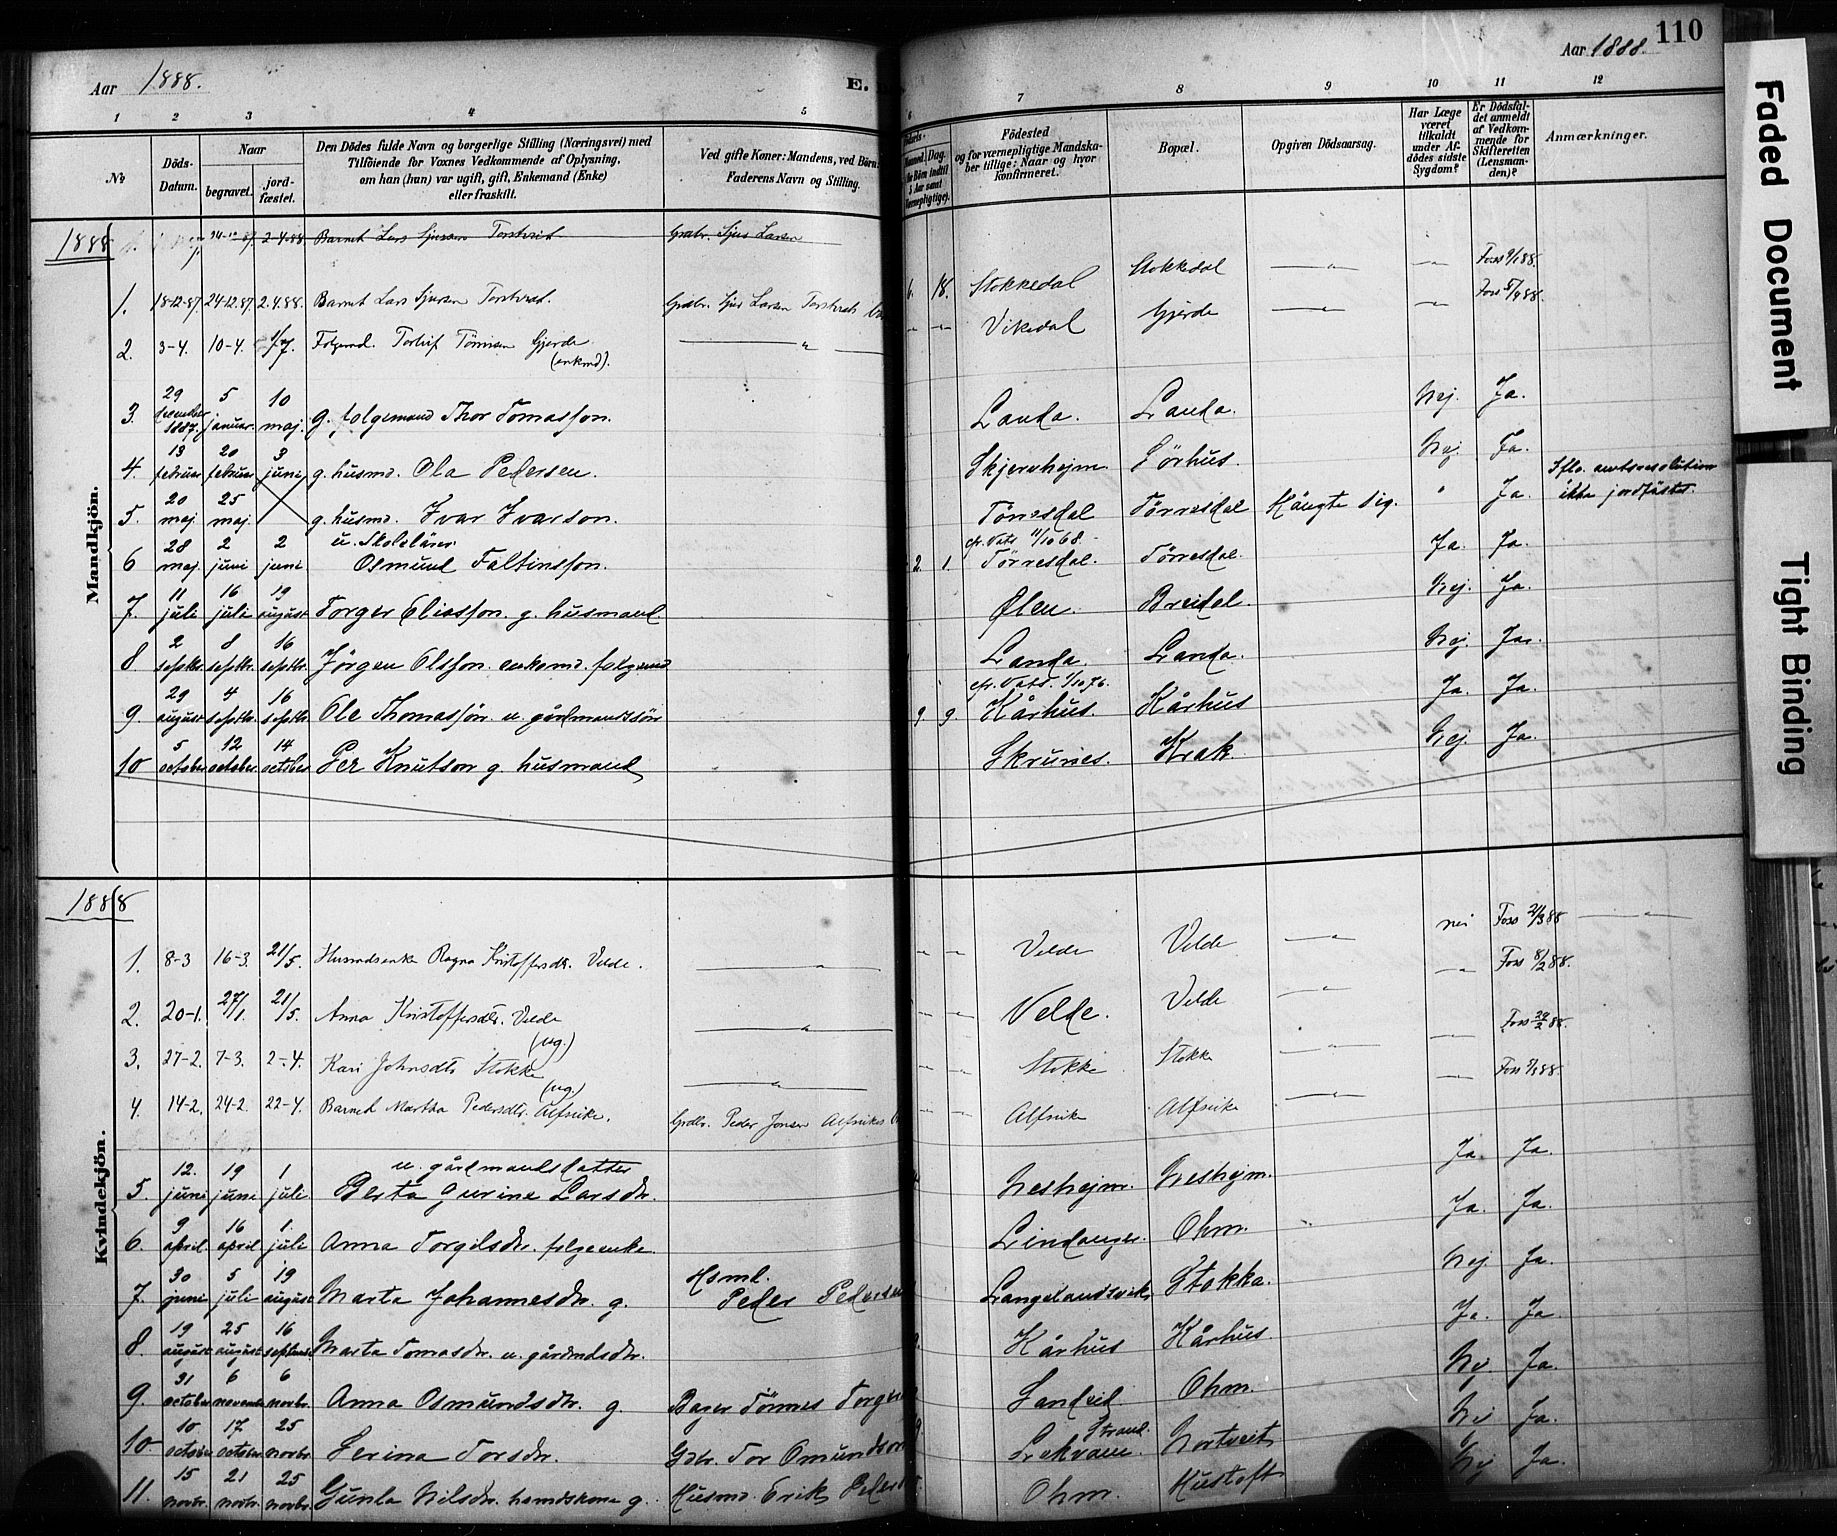 Aar 1888.
E.
Aar 1888.
110
1 2 3 4 5 6 7 8 9 10 11 12
No
Döds-Datum.
Naar
begravet.
jord-fæstet.
Den Dödes fulde Navn og borgerlige Stilling (Næringsvei) med
Tilföiende for Voxnes Vedkommende af Oplysning,
om han (hun) var ugift, gift, Enkemand (Enke)
eller fraskilt.
Ved gifte Koner: Mandens, ved Börn:
Faderens Navn og Stilling.
Dag.
Födested
og for værnepligtige Mandska-
ber tillige: Naar og hvor
konfirmeret.
Bopæl.
Opgiven Dödsaarsag.
Har Læge
været
tilkaldt
under Af-
dödes sidste
Sygdom?
Er Dödsfal-
det anmeldt
af Vedkom-
mende for
Skifteretten
(Lensman-
den)?
Anmærkninger.
Mandkjön.
1888
24-12 87. 2-4.88. Barnet Lars Sjursen Torstveit Grdbr. Sjur Larsen
1. 18-12-87. 24-12.87. 2.4.88. Barnet Lars Sjursen Torstveit. Grdbr. Sjur Larsen Torstveit 6. 18. Stokkedal Stokkedal — " — — " — Foss 9/1 88.
2. 3-4. 10-4. 1/7. Folgemd. Torleif Tönnesen Gjerde (enkmd). — " — Vikedal Gjerde — " — — " — Foss 5/4 88.
3. 29 december 1887. 5 januar. 10 maj. g. folgemand Thor Tomasson. Landa. Landa. Nej. Ja.
4. 13 februar 20 februar 3 juni g. husmd. Ola Pedersen. Skjervhejm Sörhus. Nej. Ja.
5. 20 maj. 25 maj. g. husmd. Ivar Ivarson. Tönesdal Törresdal Hängte sig. " Ja. Iflo. amtsresolution ikke jordfästet.
6 28 maj. 2 juni 2 juni u. Skolelärer Osmund Faltinsson. 2. 1. cfr. Vats 11/10 68. Törresdal. Törresdal. Ja. Ja.
7. 11 juli 16 juli 19 august Torger Eliasson. g. husmand. Ølen. Breidal. Nej. Ja.
8 2 septbr. 8 septbr. 16 septbr. Jörgen Olsson. enkemd. folgemd Landa. Landa. Nej. Ja.
9. 29 august 4 septbr. 16 septbr. Ole Thomassön. u. gårdmandssön 9. 9. cfr. Vats. 1/10 76. Kårhus. Kårhus Ja. Ja.
10 5 october 12 october. 14 october Per Knutson g. husmand Skrunes. Krak. Nej. Ja.
Kvindekjön.
1888
1. 8-3 16-3. 21/5. Husmdsenke Ragna Kristoffersdtr. Velde. — " — Velde Velde — " — nei Foss 21/3 88 — " —
2. 20-1. 27/1. 21/5. Anna Kristoffersdtr. Velde (ug.) — " — Velde. Velde — " — — " — Foss 8/2 88.
3. 27-2. 7-3. 2-4. Kari Johnsdtr Stokke (ug.) — " — Stokke Stokke — " — — " — Foss 29/2 88.
4. 14-2. 24-2. 22-4. Barnet Martha Pedersdtr. Alfsvike. Grdbr. Peder Jonsen Alfsvike Alfsvike Alfsvike — " — — " —
5. 12. juni 19 juni 1 juli. u. gårdmandsdatter Berta Gurine Larsdtr. Neshejm. Neshejm. Ja. Ja.
6. 9 april. 16 april 1. juli Anna Torgilsdtr. folgeenke. Lindanger. Ohm. " Ja. Ja.
7. 30 juni 5 juli 19 august Marta Johannesdtr. g. Hsmd. Peder Pedersen Langelandsvik Stokka. Nej Ja.
8. 19 august 25 august 16 septemb. Marta Tomasdtr. u. gårdmdsdtr. Kårhus Kårhus. Ja. Ja.
9. 31 october 6 november 6 novbr. Anna Osmundsdtr. g. Bager Tönnes Sandeid. Ohm. Nej. Ja.
10 10 october 17 october 25 novbr. Serina Torsdtr. Gdbr. Tor Omundson Strand. Lekvam. Nortveit Nej Ja.
11. 15 novbr. 21 novbr. 25 novbr. Gunla Nilsdtr. g. Husmd. Erik Ohm. Hustoft Nej Ja.
Faded Document
Tight Binding